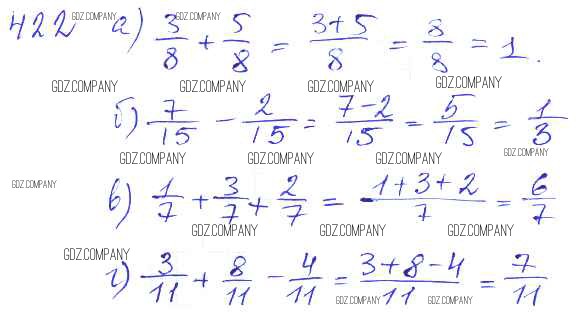 422 а) 3/8 + 5/8 = 3+5/8 = 8/8 = 1.
GDZ.COMPANY GDZ.COMPANY
GDZ.COMPANY GDZ.COMPANY GDZ.COMPANY GDZ.COMPANY
б) 7/15 - 2/15 = 7-2/15 = 5/15 = 1/3
GDZ.COMPANY GDZ.COMPANY GDZ.COMPANY GDZ.COMPANY
GDZ.COMPANY
в) 1/7 + 3/7 + 2/7 = 1+3+2/7 = 6/7
GDZ.COMPANY GDZ.COMPANY GDZ.COMPANY
GDZ.COMPANY
г) 3/11 + 8/11 - 4/11 = 3+8-4/11 = 7/11
GDZ.COMPANY GDZ.COMPANY